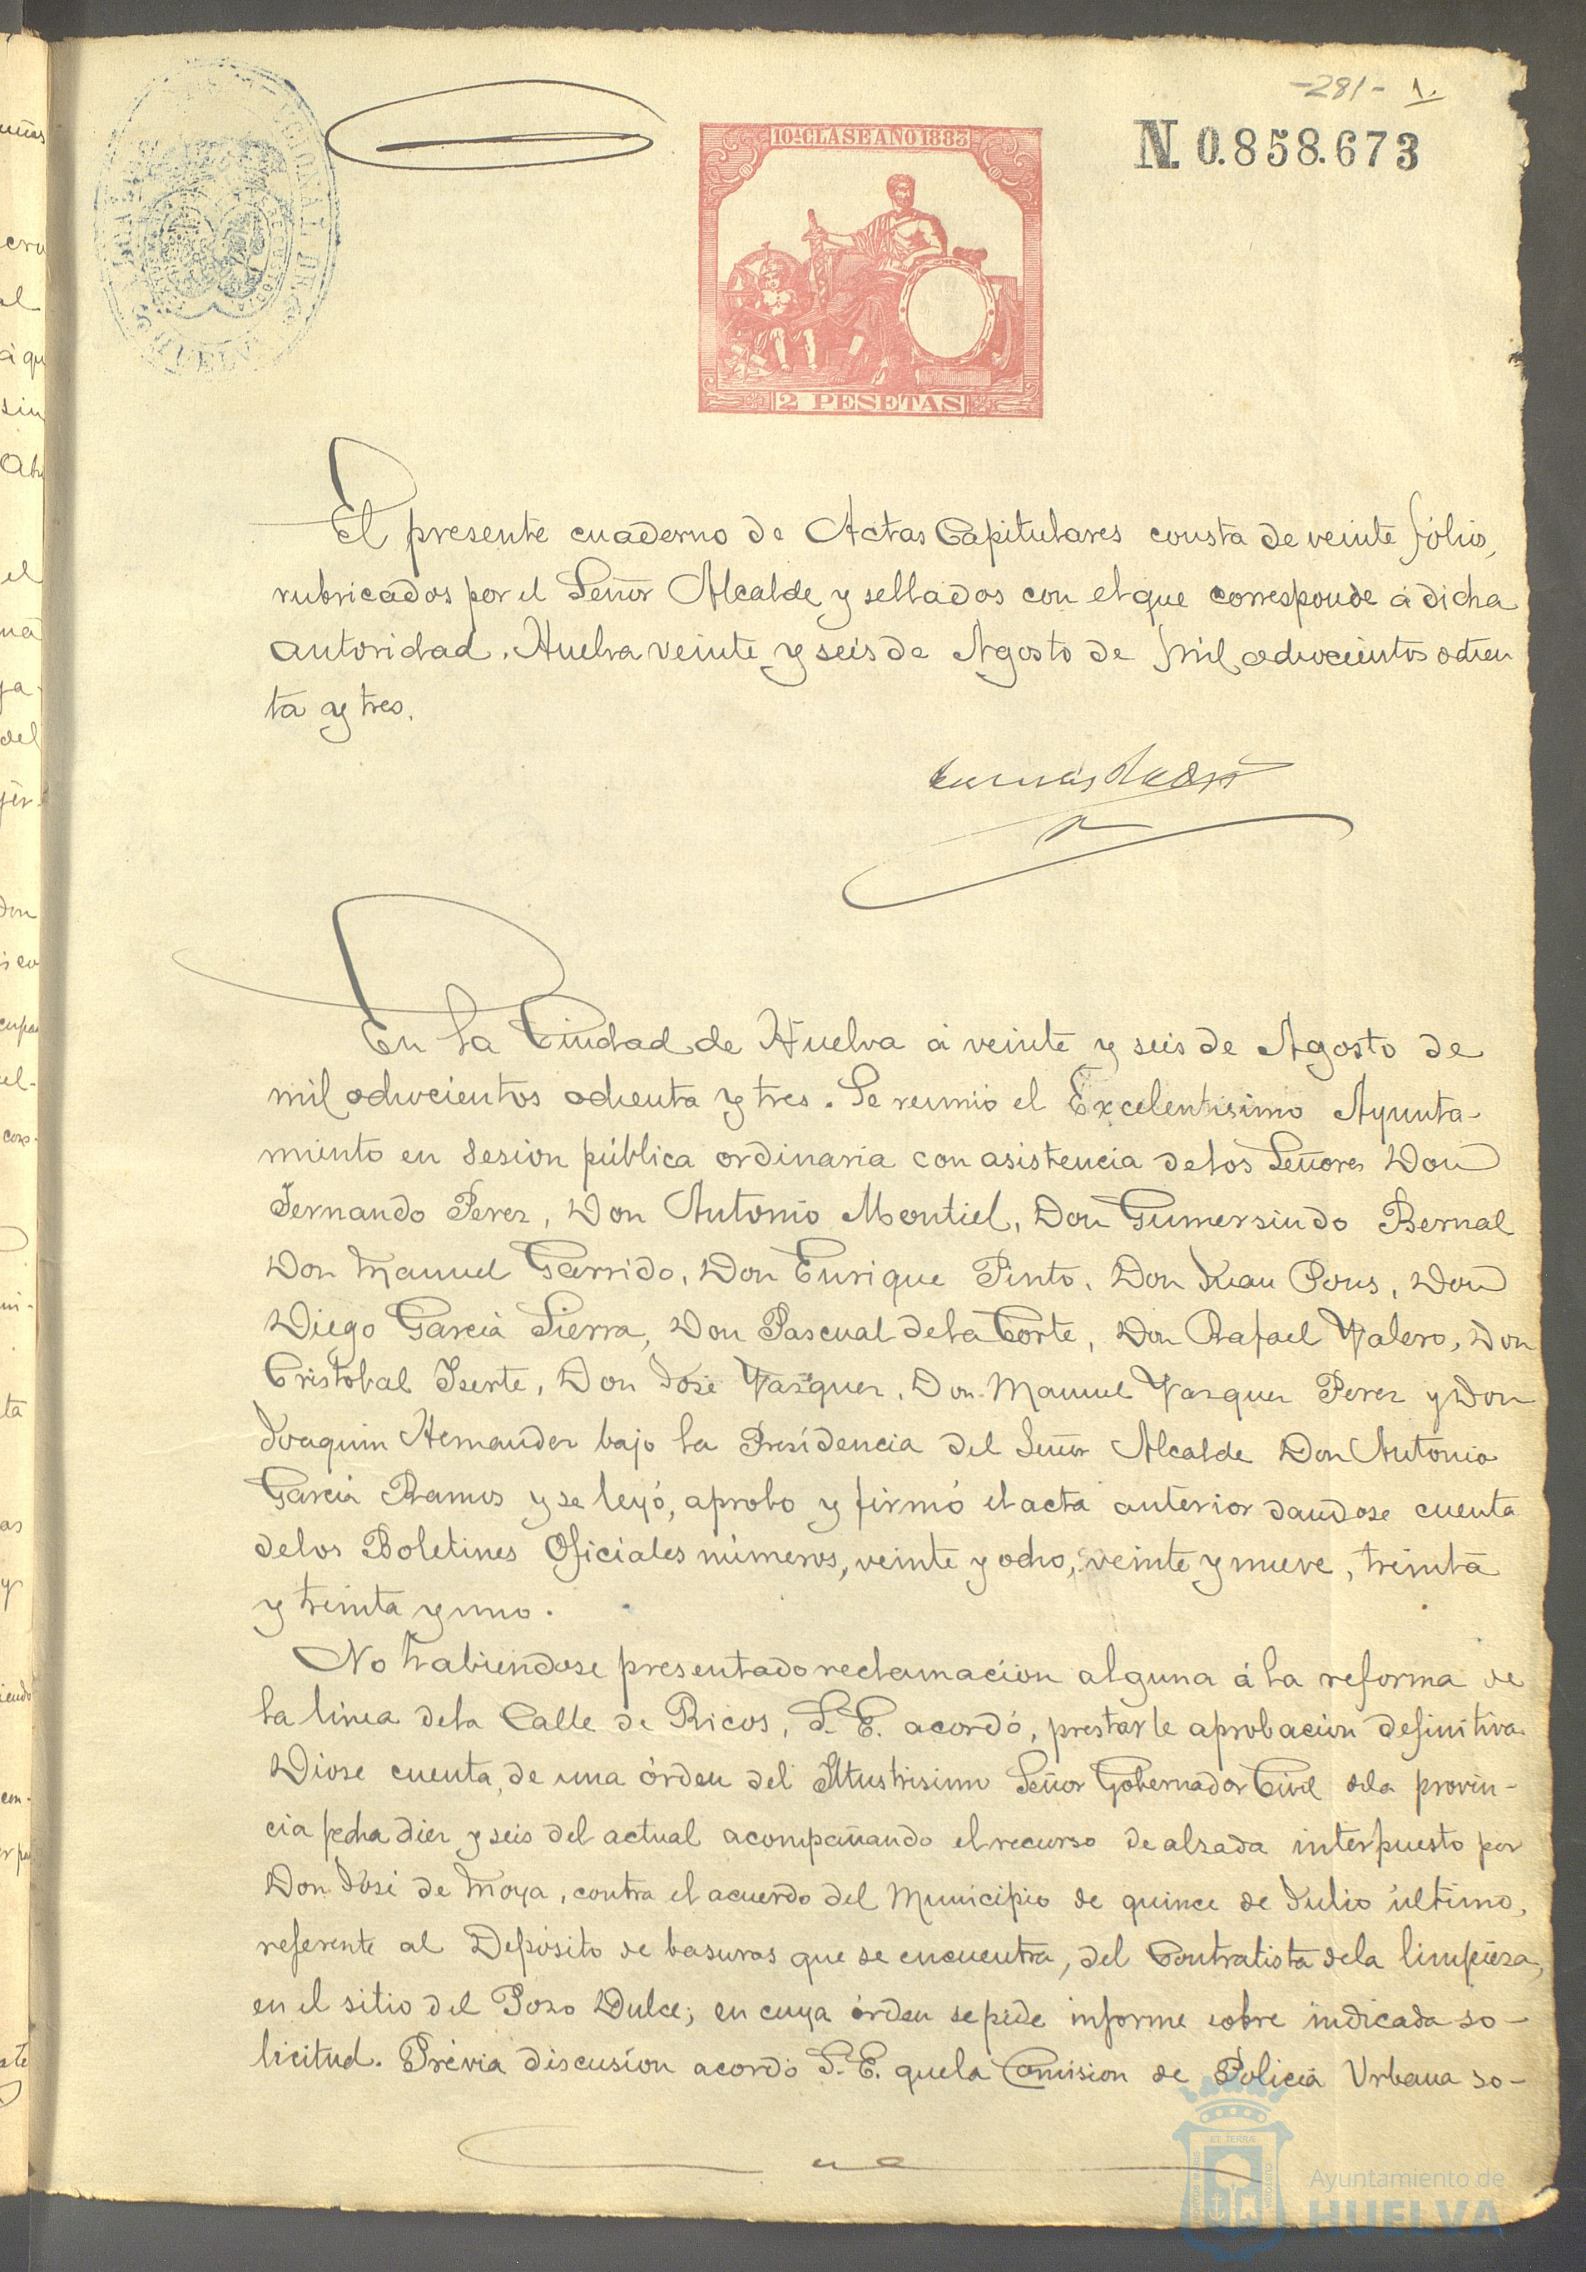 -281- 1.
N. 0.858.673
10ª CLASE AÑO 1883
2 PESETAS
El presente cuaderno de Actas Capitulares consta de veinte fólios,
rubricados por el Señor Alcalde y sellados con el que corresponde á dicha
autoridad. Huelva veinte y seis de Agosto de mil ochocientos ochen
ta y tres.
En la Ciudad de Huelva á veinte y seis de Agosto de
mil ochocientos ochenta y tres. Se reunió el Excelentisimo Ayunta-
miento en sesion pública ordinaria con asistencia de los Señores Don
Fernando Perez, Don Antonio Montiel, Don Gumersindo Bernal
Don Manuel Garrido, Don Enrique Pinto, Don Juan Pons, Don
Diego Garcia Sierra, Don Pascual de la Corte, Don Rafael Valero, Don
Cristobal Iserte, Don José Vazquez, Don Manuel Vazquez Perez y Don
Joaquin Hernandez bajo la Presidencia del Señor Alcalde Don Antonio
Garcia Ramos y se leyó, aprobo y firmó el acta anterior dandose cuenta
de los Boletines Oficiales números, veinte y ocho, veinte y nueve, treinta
y treinta y uno.
No habiendose presentado reclamacion alguna á la reforma de
la linea de la Calle de Ricos, S. E. acordó, prestarle aprobacion definitiva.
Diose cuenta, de una órden del Illustrisimo Señor Gobernador Civil de la provin-
cia fecha diez y seis del actual acompañando el recurso de alzada interpuesto por
Don José de Moya, contra el acuerdo del Municipio de quince de Julio último,
referente al Depósito de basuras que se encuentra, del Contratista de la limpieza,
en el sitio del Pozo Dulce; en cuya órden se pide informe sobre indicada so-
licitud. Prévia discusion acordó S. E. que la Comision de Policia Urbana so-
Ayuntamiento de
HUELVA